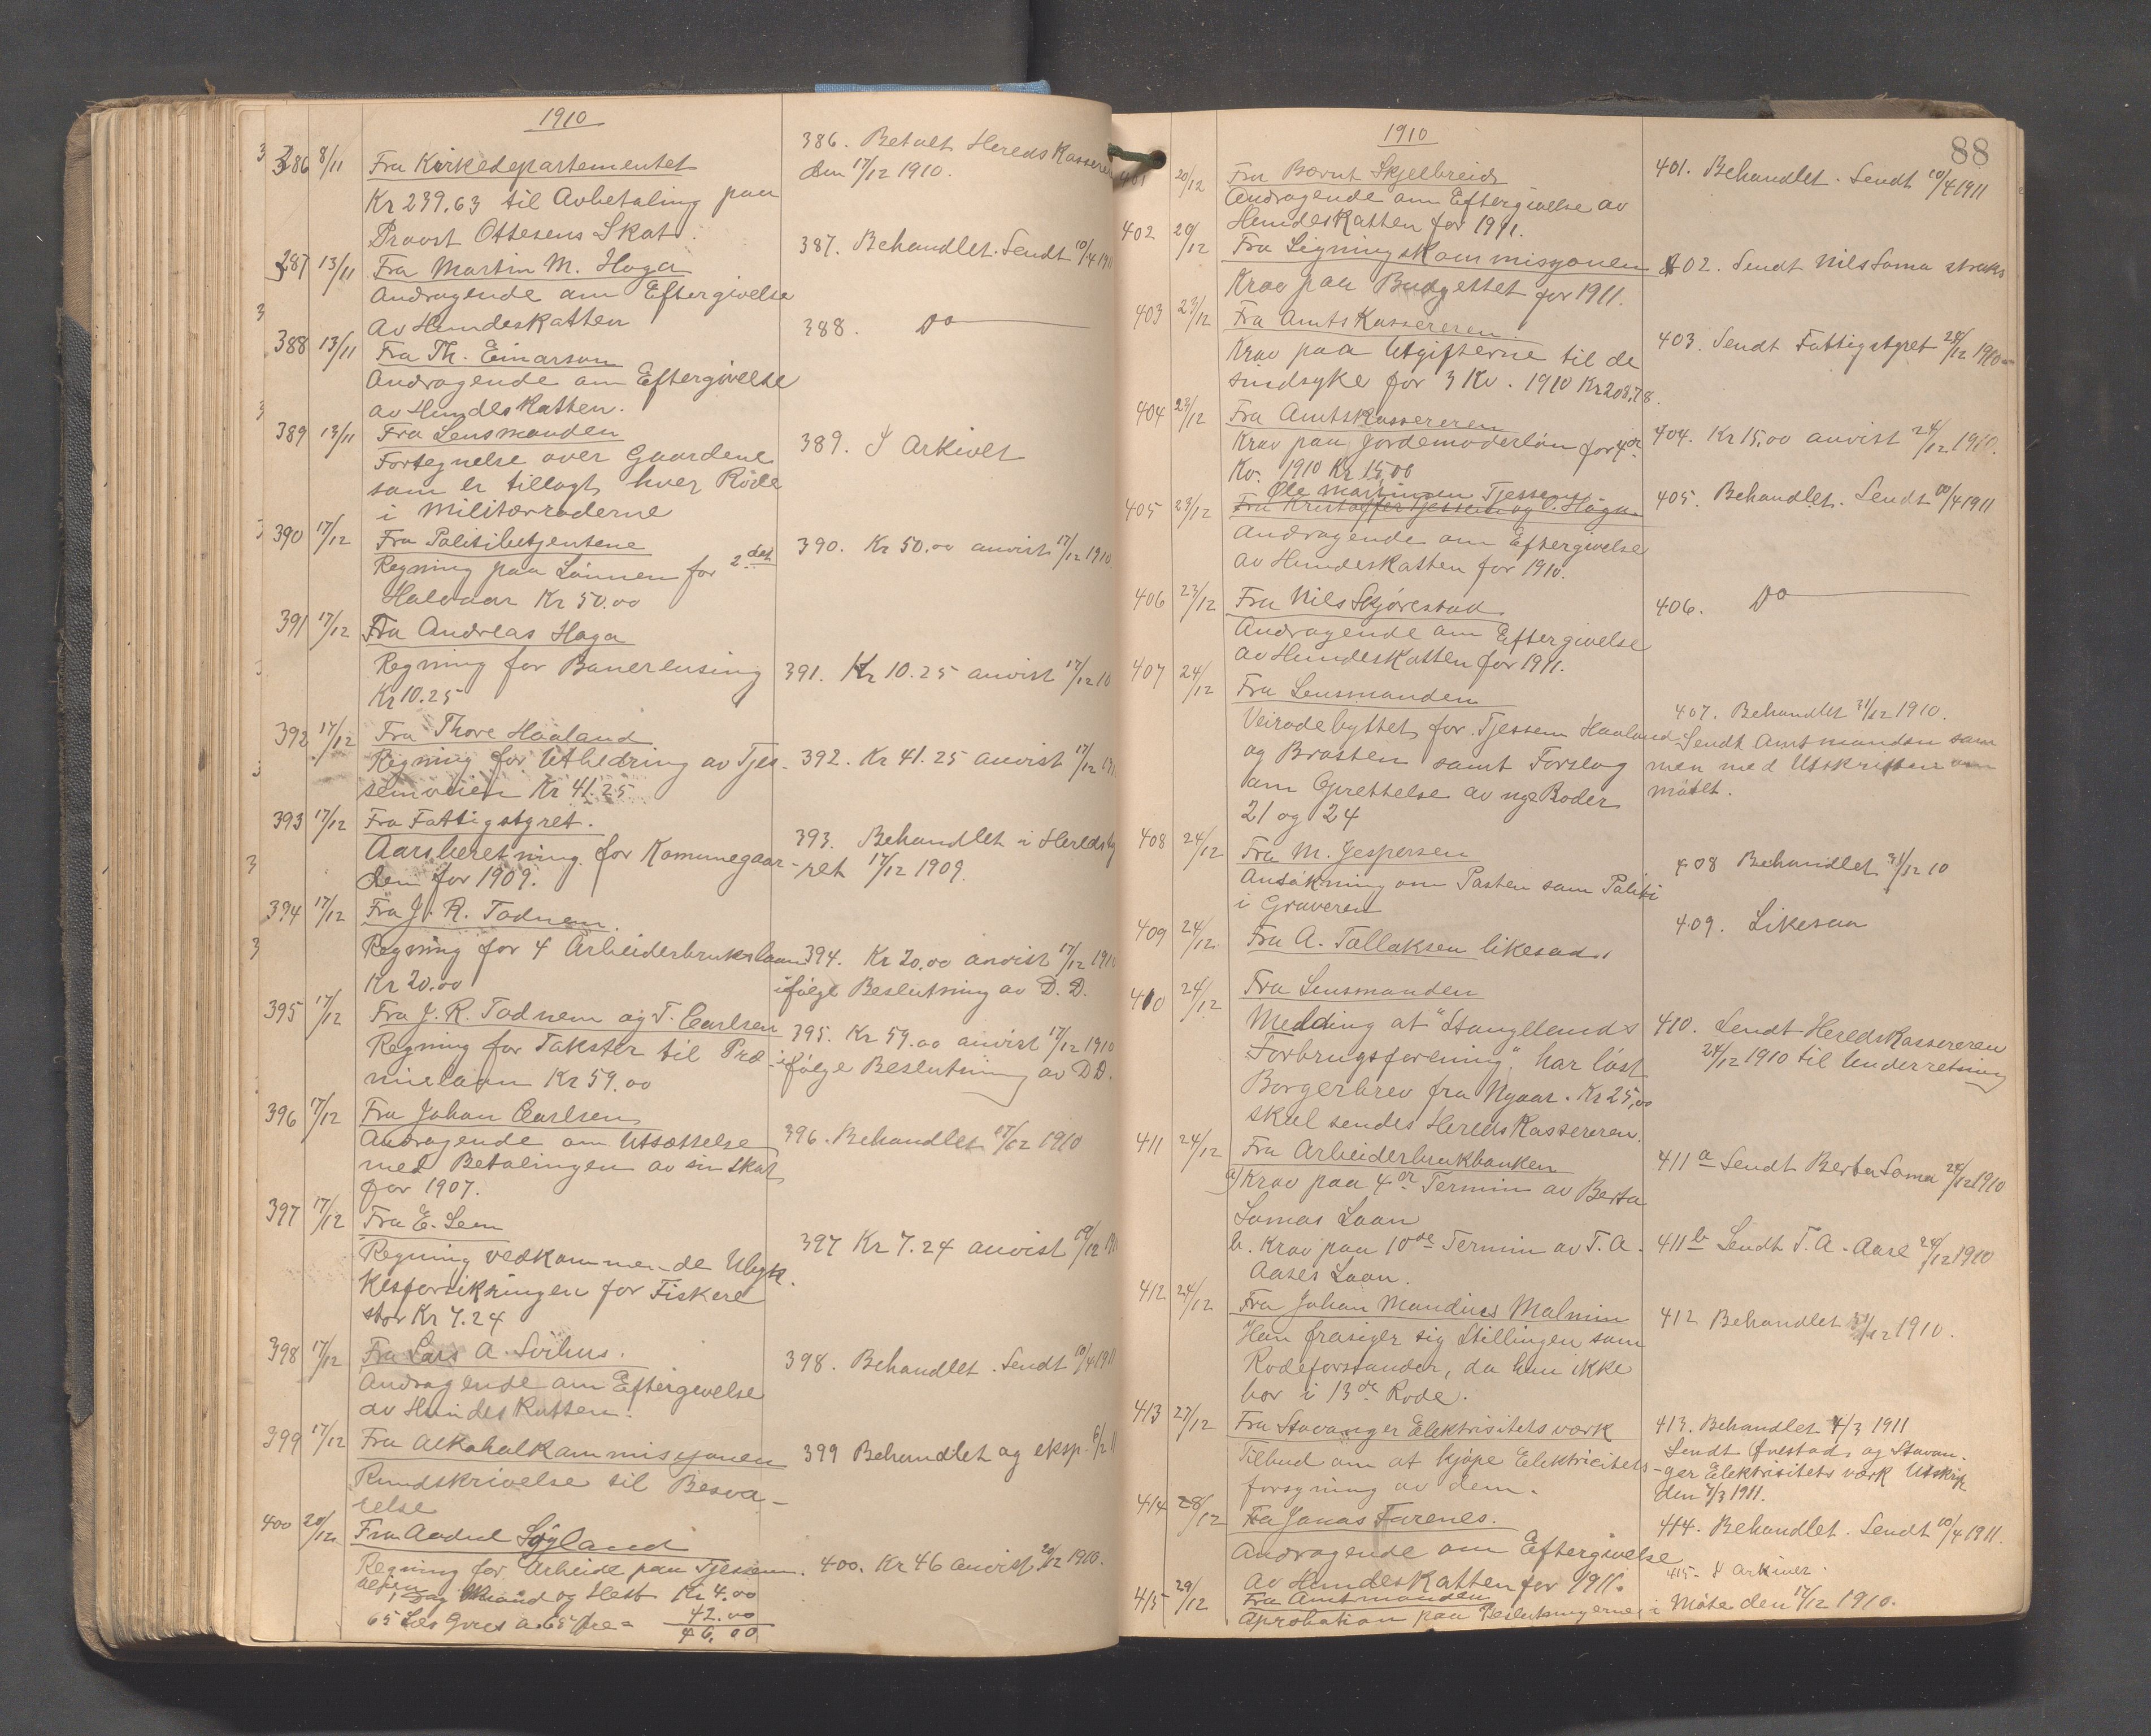 1910
386 8/11 Fra Kirkedepartementet
Kr 239.63 til Avbetaling paa
Provst Ottesens Skat.
386. Betalt Hereds Kasserer
den 17/12 1910.
387 13/11 Fra Martin M. Haga
Andragende om Eftergivelse
av HundesKatten
387. Behandlet. Sendt 10/4 1911
388 13/11 Fra Th. Einarson
Andragende om Eftergivelse
av HundesKatten.
388. Do
389 13/11 Fra Lensmanden
Fortegnelse over Gaardene
som er tillagt hver Rode
i Militærroderne
389. I Arkivet
390 17/12 Fra Politibetjentene
Regning paa Lönnen for 2det
Halvaar Kr 50.00
390. Kr 50.00 anvist 17/12 1910.
391 17/12 Fra Andreas Haga
Regning for Banerensing
Kr 10.25
391. Kr 10.25 anvist 17/12 10
392 17/12 Fra Thore Haaland
Regning for Utbedring av Tjes-
semveien Kr 41.25
392. Kr 41.25 anvist 17/12
393 17/12 Fra Fattigstyret.
Aarsberetning for Komunegaar-
den for 1909.
393. Behandlet i Heredsty
-ret 17/12 1909.
394 17/12 Fra J. R. Todnem.
Regning for 4 Arbeiderbrukslaan
Kr 20.00
394. Kr 20.00 anvist 17/12 1910
ifølge Beslutning av D. D.
395 17/12 Fra J. R. Todnem og T. Carlsen
Regning for Takster til Præ-
mielaan Kr 59.00
395. Kr 59.00 anvist 17/12 1910
ifølge Beslutning av D.D.
396 17/12 Fra Johan Carlsen
Andragende om Utsættelse
med Betalingen av sin Skat
for 1907.
396. Behandlet 17/12 1910
397 17/12 Fra E. Lem
Regning vedkommende Ulyk-
kesforsikringen for Fiskere
stor Kr 7.24
397 Kr 7.24 anvist
398 17/12 Fra Lars A. Svihus.
Andragende om Eftergivelse
av HundesKatten.
398. Behandlet. Sendt 10/4 1911
399 17/12 Fra AlkoholKommisjonen
Rundskrivelse til Besva-
relse
399 Behandlet og eksp. 6/2 11
400 20/12 Fra Aadel Lygland
Regning for Arbeide paa Tjessem.
1 Dag Mand og Hest Kr 4.00
65 Læs Grus a 65 Øre = 42.00
46,00
400. Kr 46 anvist 20/12 1910.
1910
88
401 20/12 Fra Bernt Skjelbreid
Andragende om Eftergivelse av
HundesKatten for 1911.
401. Behandlet. Sendt 10/4 1911
402 20/12 Fra LigningsKommisjonen
Krav paa Budgettet for 1911.
402. Sendt Nils Soma straks
403 23/12 Fra AmtsKassereren
Krav paa Utgifterne til de
sindsyke for 3 Kv. 1910 Kr 208.78.
403. Sendt Fattigstyret 28/12 1910
404 23/12 Fra AmtsKassereren
Krav paa Jordemoderløn for 4de
Kv. 1910 Kr 15,00
404. Kr 15.00 anvist 24/12 1910.
Ole Martinsen Tjessem
405 23/12 Fra Kristoffer Tjessem og O. Haga
Andragende om Eftergivelse
av HundesKatten for 1910.
405. Behandlet. Sendt 10/4 1911
406 23/12 Fra Nils Skjørestad
Andragende om Eftergivelse
av HundesKatten for 1911.
406. Do
407 24/12 Fra Lensmanden
Veirodebyttet for Tjessem Haaland
og Brosten samt Forslag
om Oprettelse av nye Roder
21 og 24
407. Behandlet 31/12 1910.
Sendt Amtmanden sam
men med Utskriften om
møtet.
408 24/12 Fra M. Jespersen
Ansökning om Posten som Politi
i Graveren
408 Behandlet 31/12 10
409 24/12 Fra A. Tallaksen likesaa.
409. Likesaa
410 24/12 Fra Lensmanden
Melding at "Stanglands
Forbrugsforening" har löst
Borgerbrev fra Nyaar. Kr 25,00
skal sendes HeredsKassereren.
410. Sendt HeredsKassereren
24/12 1910 til Underretning
411 24/12 Fra Arbeiderbrukbanken
a) Krav paa 4de Termin av Berta
Somas Laan
411 a Sendt Berta Soma 24/12 1910
b. Krav paa 10de Termin av T. A.
Aases Laan.
411 b Sendt T. A. Aase 24/12 1910
412 24/12 Fra Johan Mandius Malmin
Han frasiger sig Stillingen som
Rodeforstander, da han ikke
bor i 13de Rode.
412 Behandlet 31/12 1910.
413 27/12 Fra Stavanger Elektrisitetsværk
Tilbud om at kjøpe Elektricitets-
forsyning av dem.
413. Behandlet 4/3 1911
Sendt og Stavan-
ger Elektrisitets værk Utskrift
den 7/3 1911.
414 28/12 Fra Jonas Forenes.
Andragende om Eftergivelse
av HundesKatten for 1911.
414. Behandlet. Sendt 10/4 1911.
415 29/12 Fra Amtmanden
Aprobation paa Beslutningerne i Møte den 17/12 1910.
415- I arkivet.